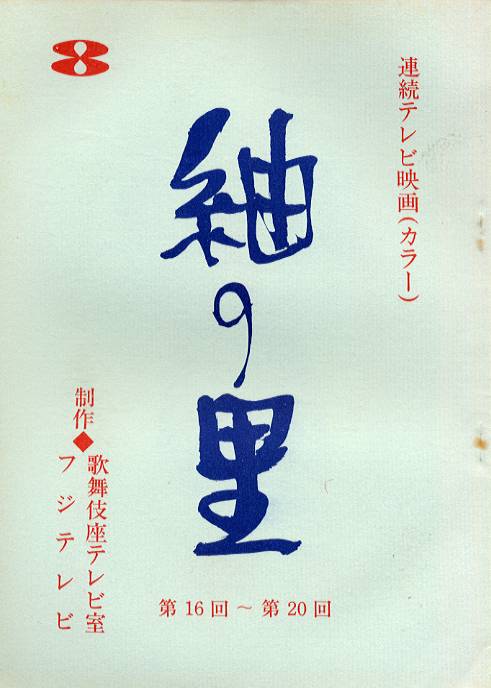 連続テレビ映画(カラー)
紬の里
制作◆歌舞伎座テレビ室
フジテレビ
第16回~第20回